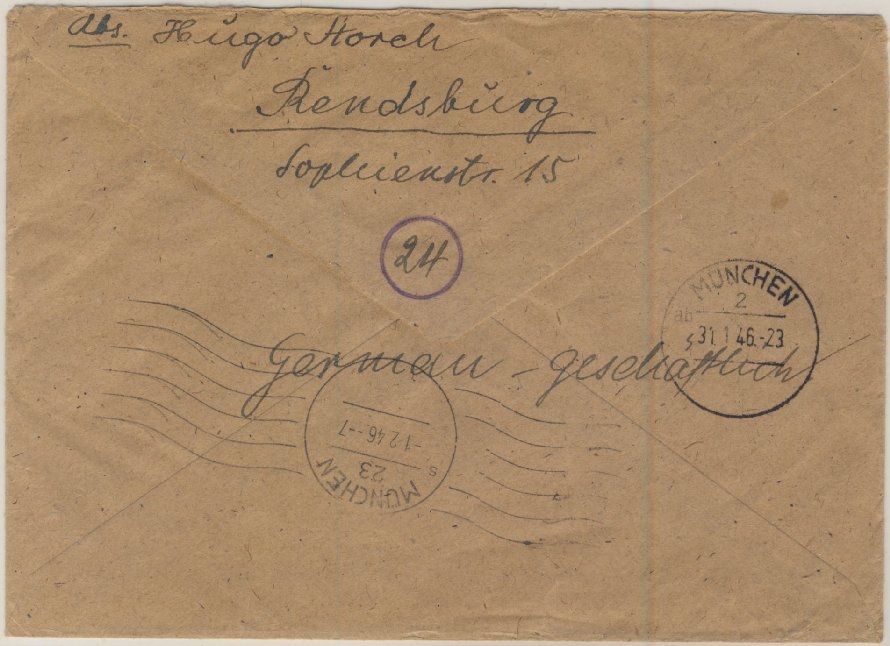 Abs. Hugo Storch
Rendsburg
Sophienstr. 15
24
MÜNCHEN
2
ab
31.1.46.-23
German - geschäftlich
s
-1.2.46.--7
23
MÜNCHEN